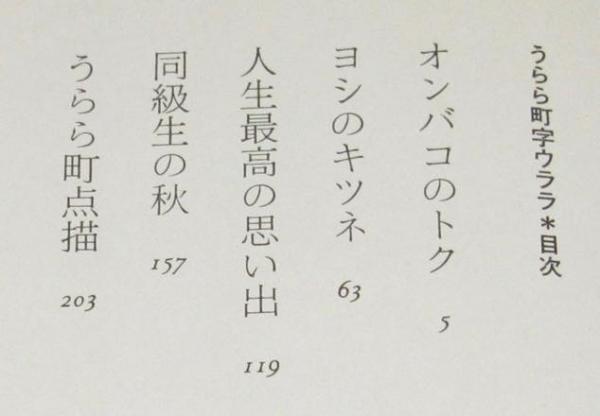 うらら町字ウララ＊目次
オンバコのトク 5
ヨシのキツネ 63
人生最高の思い出 119
同級生の秋 157
うらら町点描 203